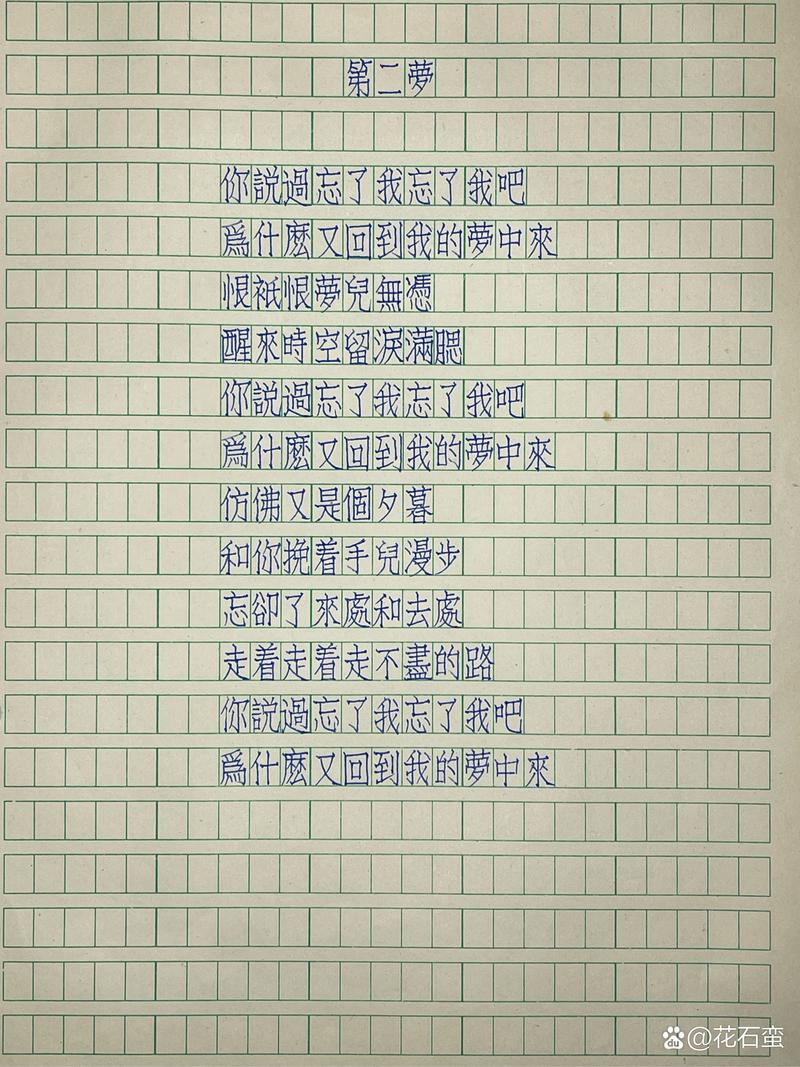 第二夢
你説過忘了我忘了我吧
爲什麽又回到我的夢中來
恨衹恨夢兒無憑
醒來時空留淚滿腮
你説過忘了我忘了我吧
爲什麽又回到我的夢中來
仿佛又是個夕暮
和你挽着手兒漫步
忘卻了來處和去處
走着走着走不盡的路
你説過忘了我忘了我吧
爲什麽又回到我的夢中來
du @花石蛮